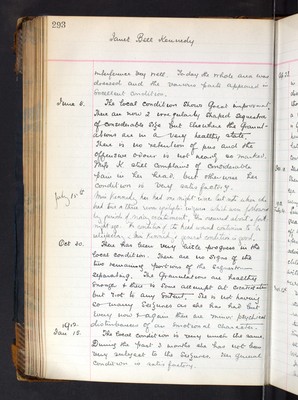 293
Janet Bell Kennedy
interference very well. To day the whole area was
dressed and the various parts appeared in
excellent condition.
June 8. The local condition shows great improvement.
There are now 2 irregularly shaped sequestra
of considerable size but elsewhere the granul-
ations are in a very healthy state.
There is no retention of pus and the
offensive odour is not nearly so marked.
Miss K still complains of considerable
pain in her head but otherwise her
condition is very satisfactory.
July 15th Miss Kennedy has had one night
had
by period of
night ago. The condition of the head wound continues to be
satisfactory. Miss Kennedy's general condition is good.
Oct 20. There has been very little progress in the
local condition. There are no signs of the
two remaining portions of the sequestra
separating. The granulations are healthy
enough & there is some attempt at cicatrisation
but not to any extent. She is not having
so many seizures as she has had but
every now & again there are minor psychical
disturbances of an emotional character.
1912.
Jan 15. The local condition is very much the same.
During the past 3 months she has not been
very subject to the seizures. Her general
condition is satisfactory.